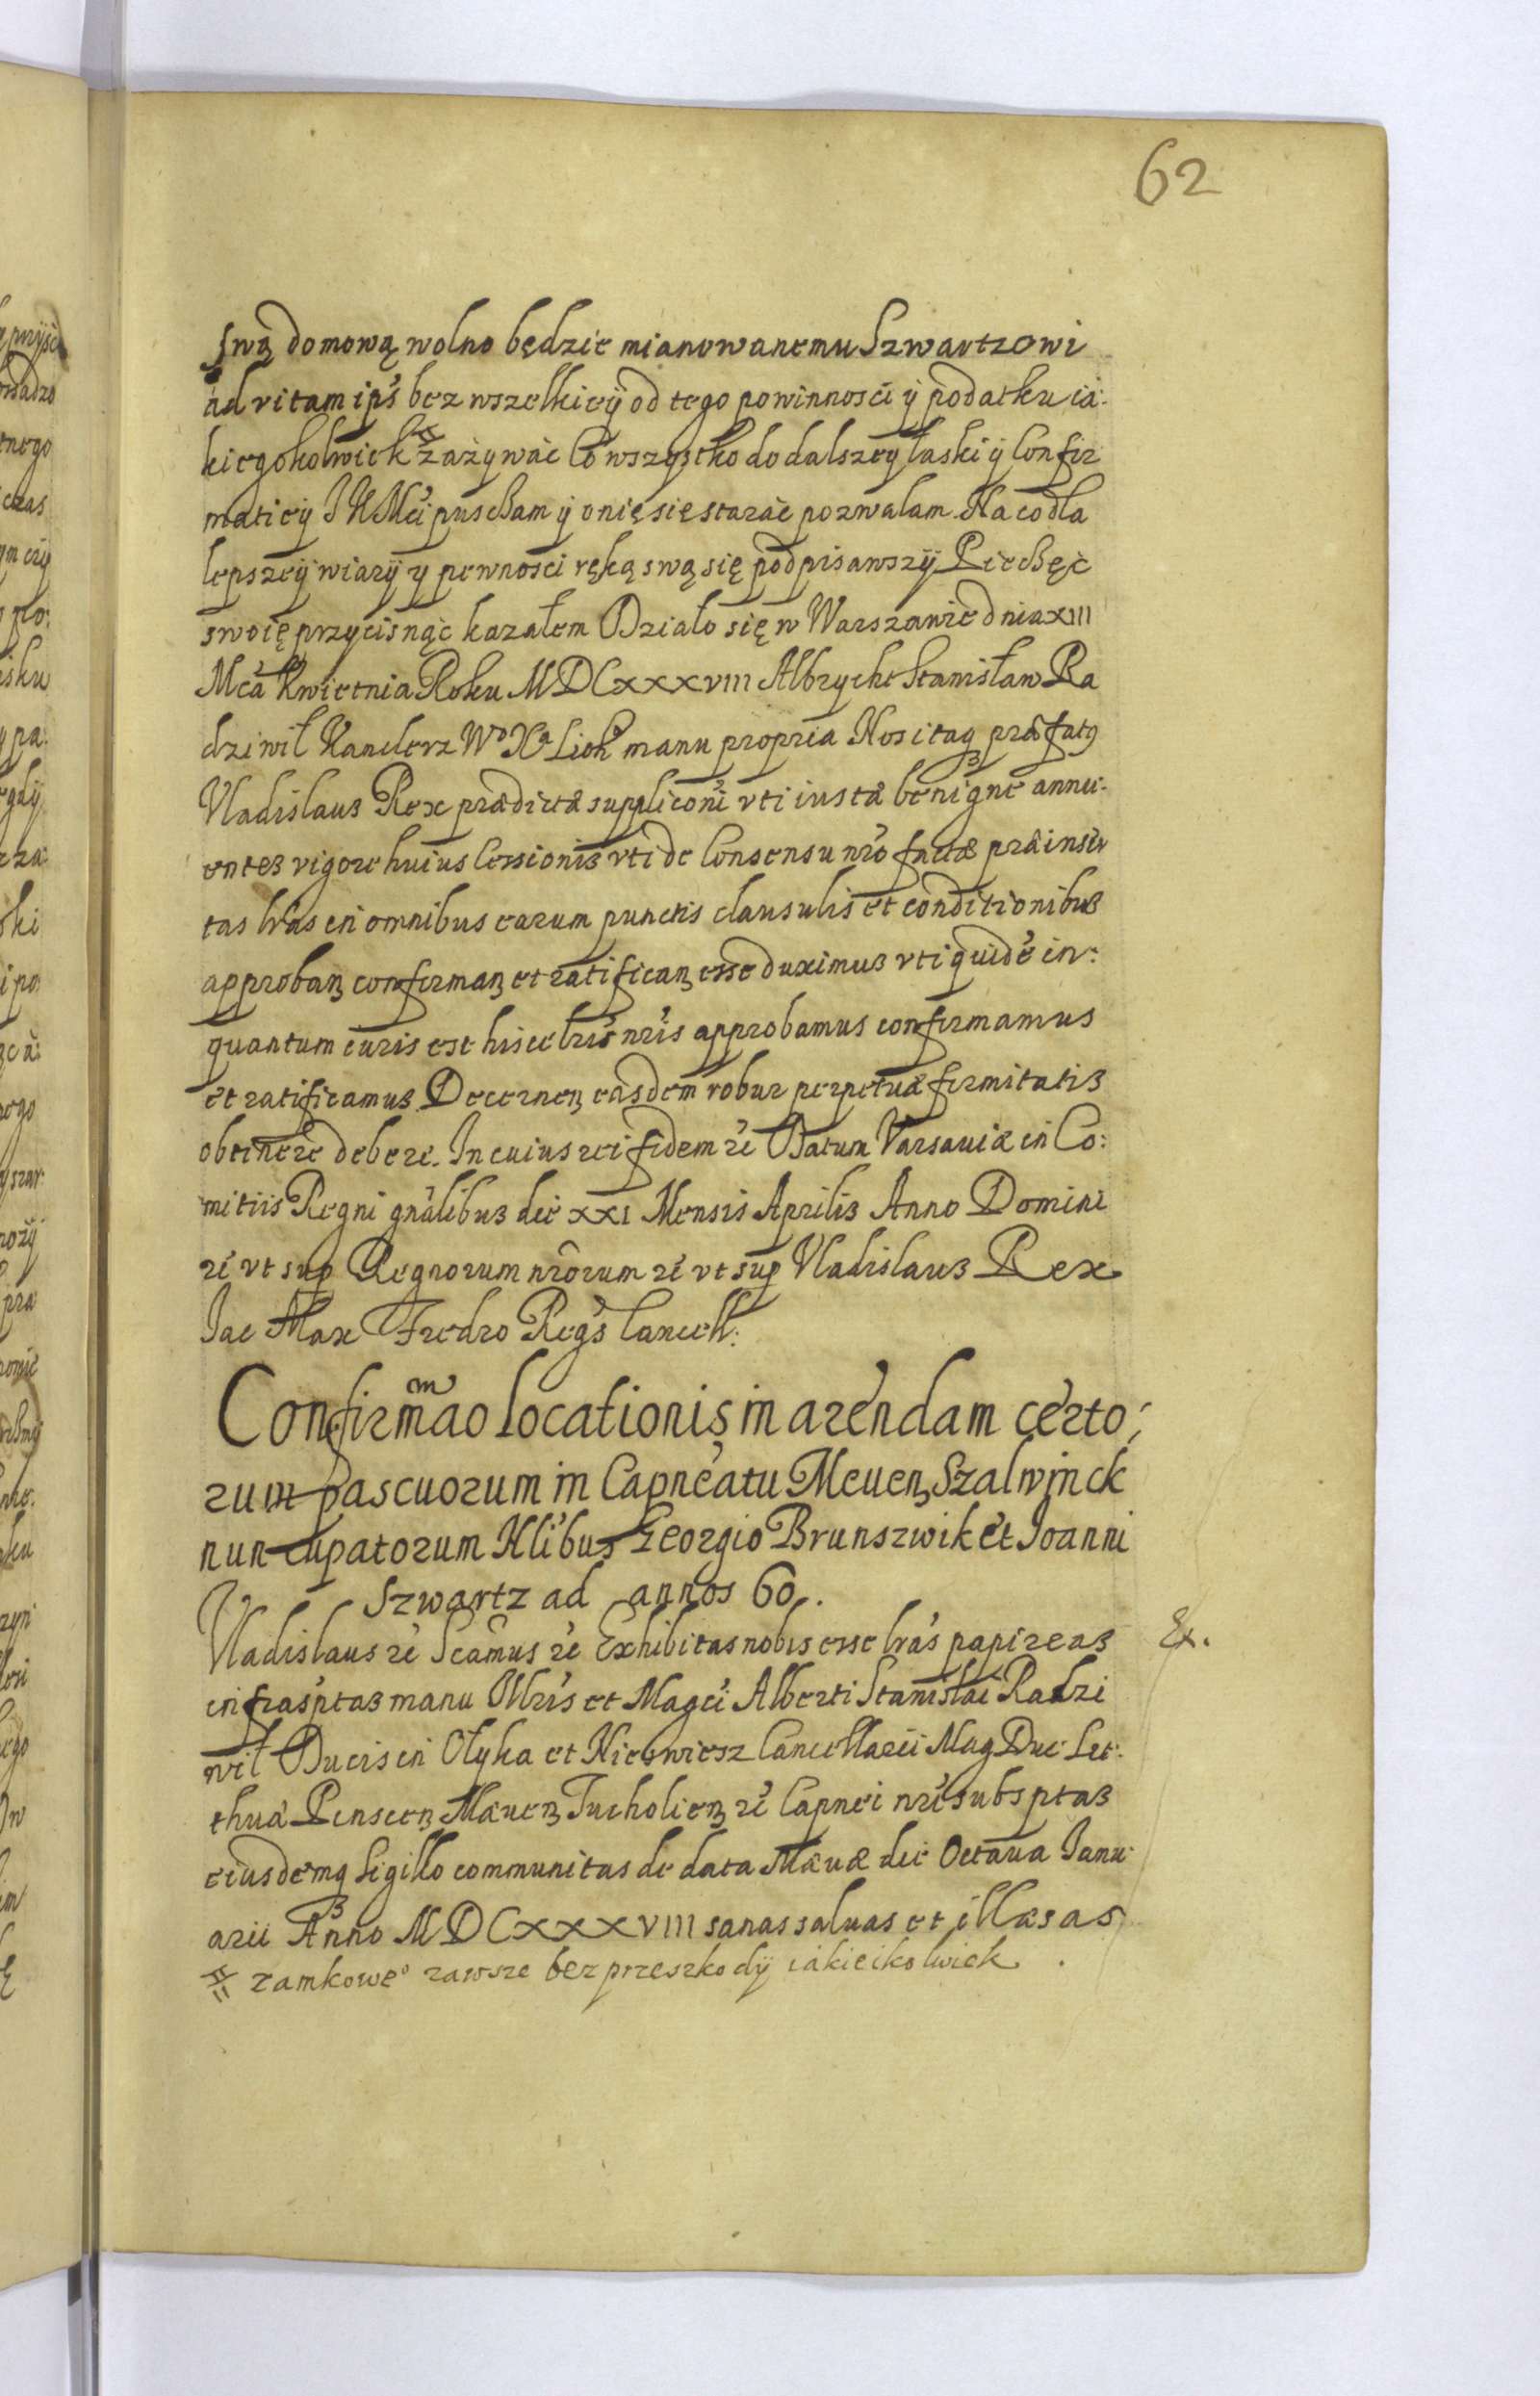 62
swą domową wolno będzie mianowanemu Szwartzowi
ad vitam ips bez wszelkieÿ od tego powinnosći ÿ podatku ia:
kiegokolwiek # zażywać Co wszystko do dalszeÿ łaski ÿ Confir
matieÿ J K Mći puscham ÿ onię się starać pozwalam. Na co dla
lepszeÿ wiarÿ y pewnosći ręką swą się podpisawszÿ Piechęć
swoię przycisnąć kazałem Działo się w Warszawie dnia XIII
Mca Kwietnia Roku MDCXXXVIII Albrycht Stanisław Ra
dziwił Kanclerz Wo Xa Lio manu propria Nos itaq præfatq
Vladislaus Rex prædictæ suppliconi vti iustæ benigne annu:
entes vigore huius Cessionis vti de Consensu nro factæ præinser
tas lras in omnibus earum punctis clausulis et conditionibus
approbanz confirmanz et ratificanz esse duximus vti quidē in:
quantum iuris est hisce lris nris approbamus confirmamus
et ratificamus Decernenz easdem robur perpetuæ firmitatis
obtinere debere. In cuius rei fidem re Datum Varsauiæ in Co:
mitiis Regni gnalibus die XXI Mensis Aprilis Anno Domini
re vt sup Regnorum nrorum re vt sup Vladislaus Rex
Jac Max Fredro Regs Cancell:
Confirmao locationis in arendam certo:
rum pascuorum in Capneatu Meuenz Szalwinck
nuncupatorum Nlibus Georgio Brunszwik et Joanni
Szwartz ad annos 60.
Vladislaus re Scamus re Exhibitas nobis esse lras papireas
Ex.
infrasptas manu Illris et Magci Alberti Stanislai Radzi
wił Ducis in Olyka et Nieswiesz Cancellarii Mag Duc Lit:
thua Pinscenz Mæuenz Tucholienz re Capnei nre subsptas
eiusdemq Sigillo communitas de data Mæuæ die Octaua Janu
arii Anno MDCXXXVIII sanas saluas et illæsas
# zamkoweo zawsze bez przeszkodÿ iakieikolwiek.